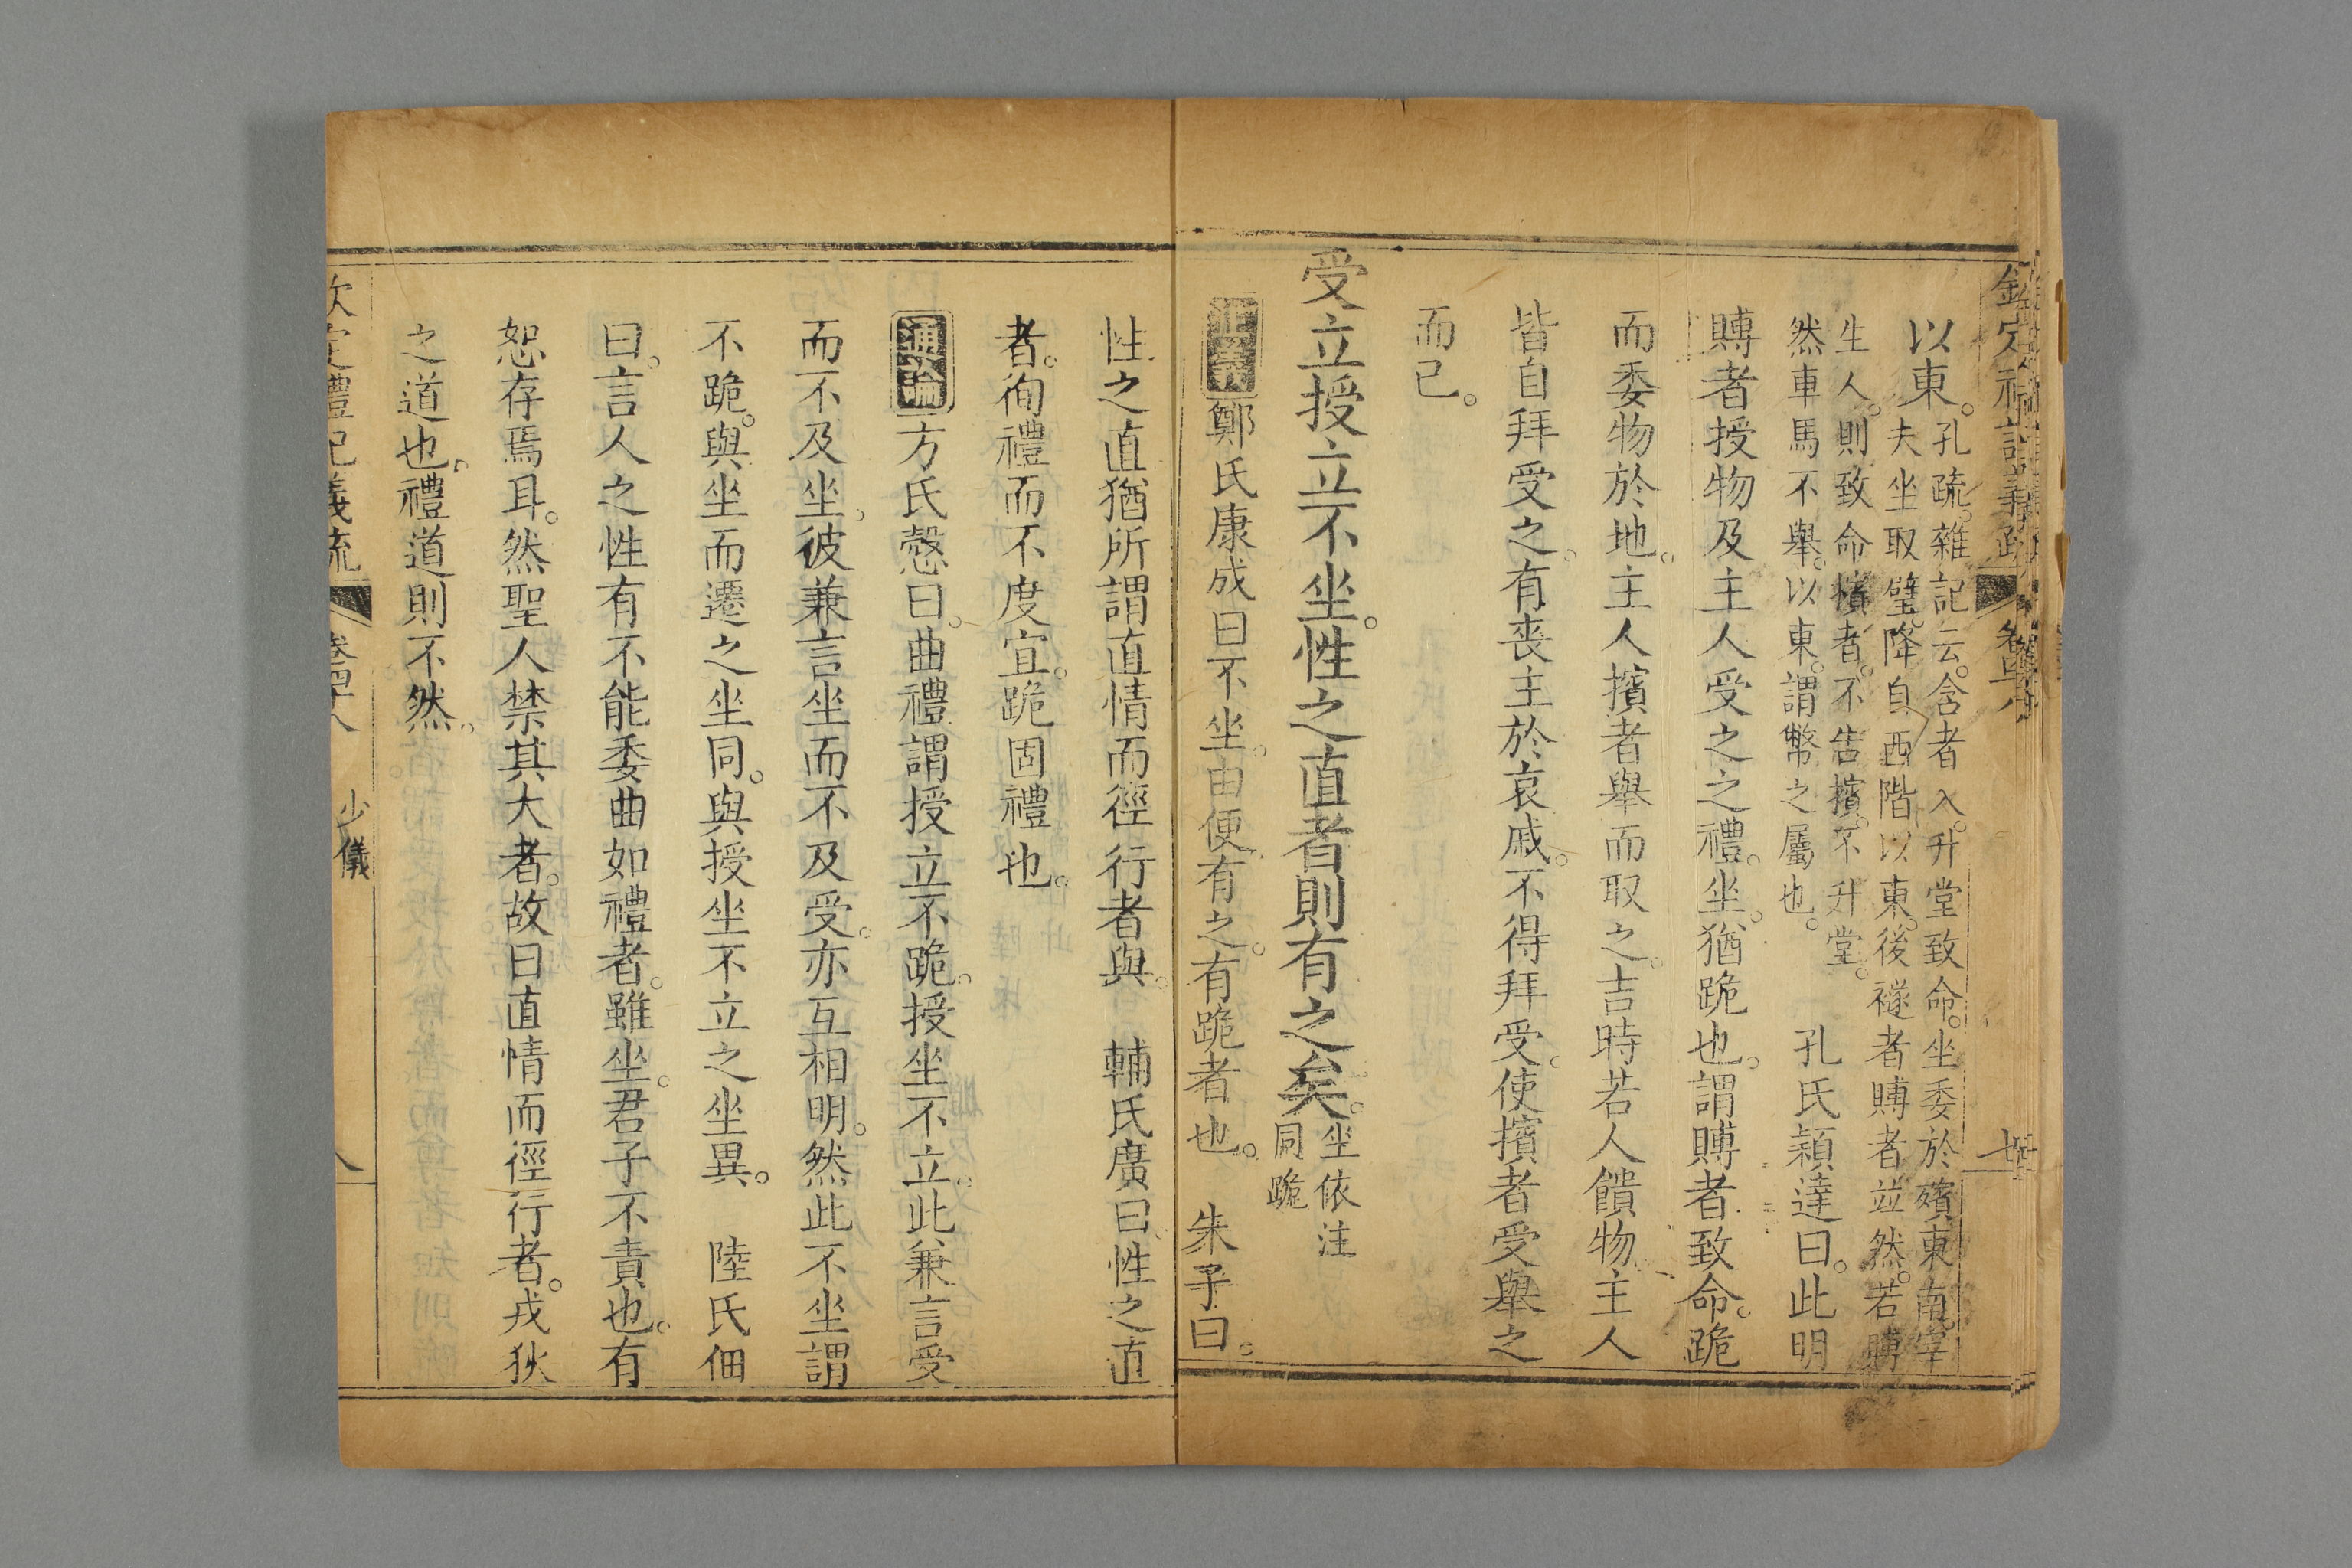 以東。孔疏。雜記云。含者入。升堂致命。坐委於殯東南。宰
夫坐取璧。降自西階以東。後襚者賻者竝然。若賻
生人。則致命擯者。不告擯。不升堂。
然車馬不舉。以東。謂幣之屬也。
孔氏穎達曰。此明
賻者授物及主人受之之禮。坐。猶跪也。謂賻者致命。跪
而委物於地。主人擯者舉而取之。吉時若人饋物主人
皆自拜受之。有喪主於哀戚。不得拜受。使擯者受舉之
而已。
受立授立不坐。性之直者則有之矣。坐依注
同跪
正義鄭氏康成曰不坐。由便。有之。有跪者也。 朱子曰。
性之直猶所謂直情而徑行者與。 輔氏廣曰。性之直
者。徇禮而不度宜。跪固禮也。
通論方氏慤曰。曲禮謂授立不跪。授坐不立。此兼言受
而不及坐。彼兼言坐而不及受。亦互相明。然此不坐謂
不跪。與坐而遷之坐同。與授坐不立之坐異。 陸氏佃
曰。言人之性有不能委曲如禮者。雖坐。君子不責也。有
恕存焉耳。然聖人禁其大者。故曰直情而徑行者。戎狄
之道也。禮道則不然。
欽定禮記義疏 卷四十八 少儀